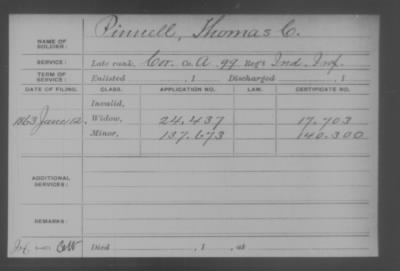 NAME OF SOLDIER: Pinnell, Thomas C.
SERVICE: Late rank, Cor. Co. A, 99 Reg't Ind. Inf.
TERM OF SERVICE: Enlisted , 1 Discharged , 1
DATE OF FILING. CLASS. APPLICATION NO. LAW. CERTIFICATE NO.
Invalid,
1863 June 12. Widow, 24.437 17.703
Minor, 137.673 140.300
ADDITIONAL SERVICES:
REMARKS:
Died , 1 , at